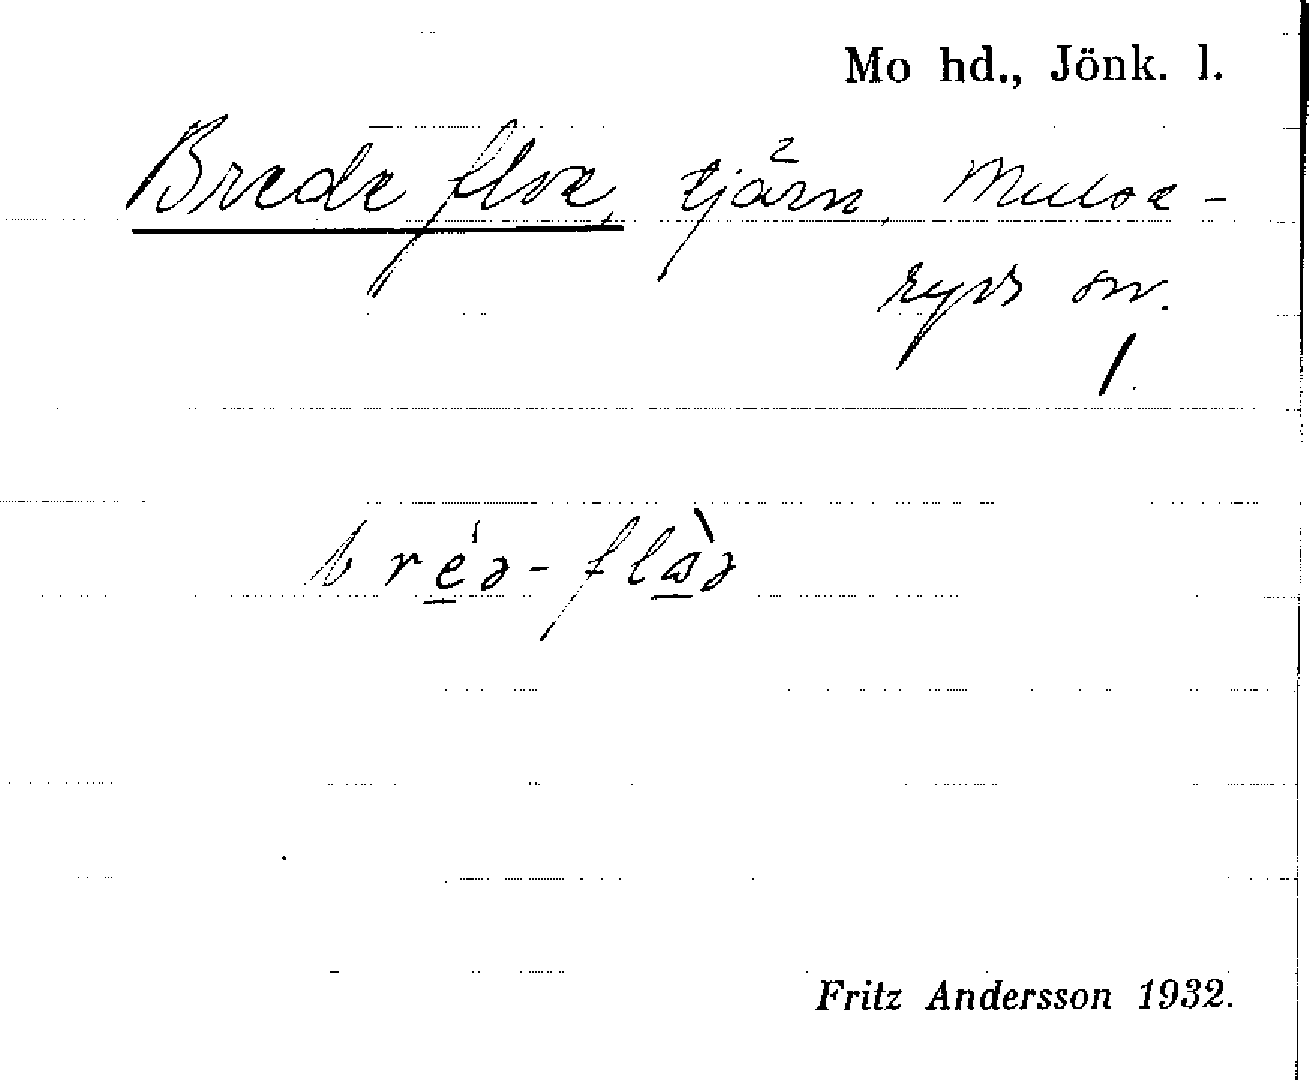 Mo hd., Jönk. l.
Brede floe, tjärn, Mulse-
ryds sn.
1.
bréə-flὰə
Fritz Andersson 1932.